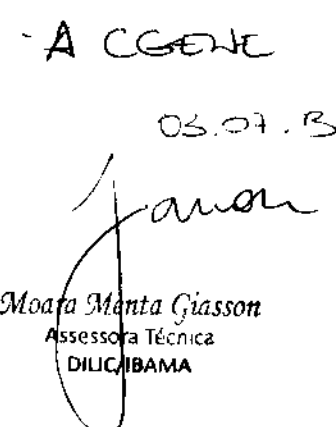 - A CGENE
05.07.13
Moara Menta Giasson
Assessora Técnica
DILIC/IBAMA